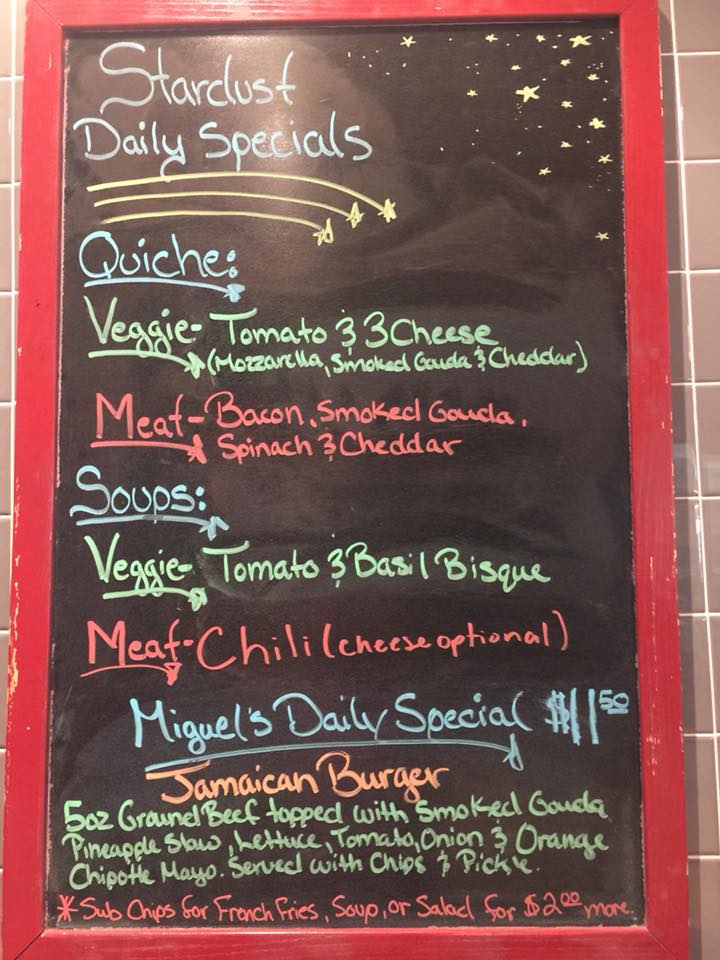 Stardust
Daily Specials
Quiche:
Veggie- Tomato & 3 Cheese
(Mozzarella, Smoked Gouda & Cheddar)
Meat- Bacon, Smoked Gouda,
Spinach & Cheddar
Soups:
Veggie- Tomato & Basil Bisque
Meat- Chili (cheese optional)
Miguel's Daily Special $11.50
Jamaican Burger
5oz Ground Beef topped with Smoked Gouda
Pineapple Slaw, Lettuce, Tomato, Onion & Orange
Chipotle Mayo. Served with Chips & Pickle.
*Sub Chips for French Fries, Soup, or Salad for $2.00 more